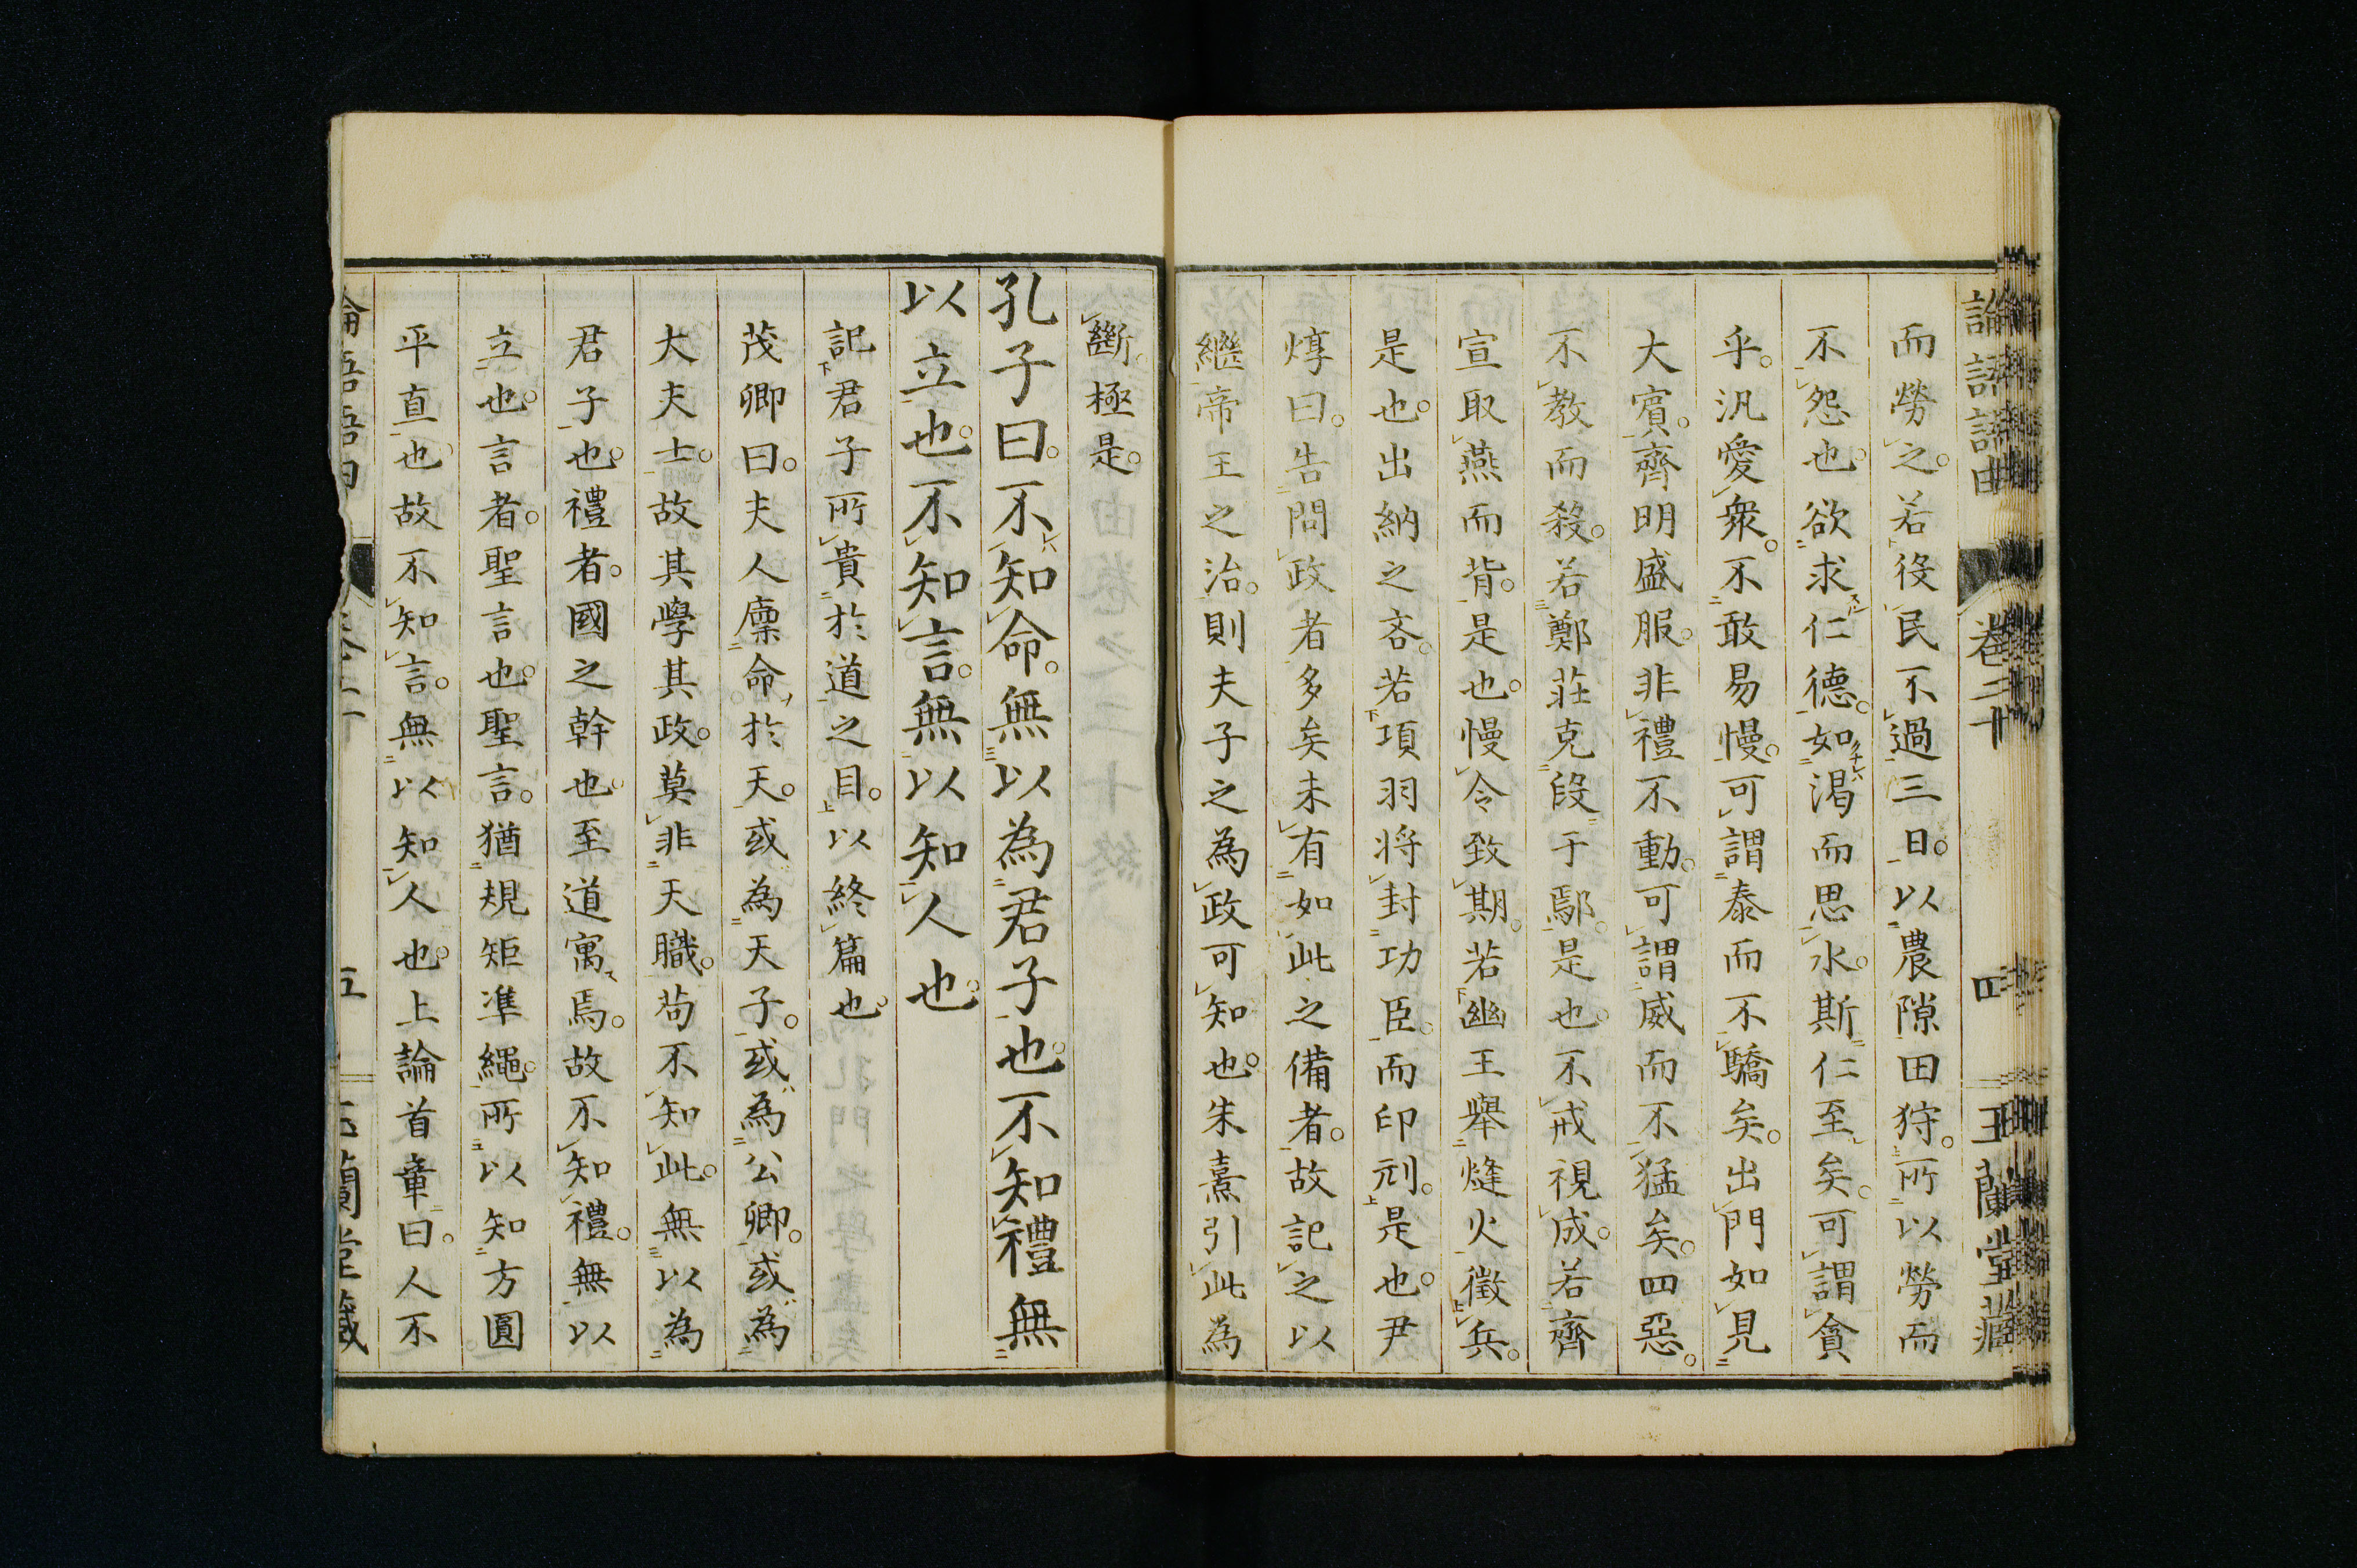 論語語由 卷二十 四 玉蘭堂藏
而勞之。若役民不過三日。以農隙田狩。所以勞而
不怨也。欲求仁德。如渴而思水。斯仁至矣。可謂貪
乎。汎愛衆。不敢易慢。可謂泰而不驕矣。出門如見
大賓。齊明盛服。非禮不動。可謂威而不猛矣。四惡。
不教而殺。若鄭莊克段于鄢。是也。不戒視成。若齊
宣取燕而背。是也。慢令致期。若幽王舉燧火徵兵。
是也。出納之吝。若項羽將封功臣。而印刓。是也。尹
焞曰。告問政者多矣未有如此之備者。故記之以
繼帝王之治。則夫子之為政可知也。朱熹引此為
斷。極是。
孔子曰。不知命。無以為君子也。不知禮無
以立也。不知言。無以知人也。
記君子所貴於道之目。以終篇也。
茂卿曰。夫人稟命於天。或為天子。或為公卿。或為
大夫士。故其學其政。莫非天職。苟不知此。無以為
君子也。禮者。國之幹也。至道寓焉。故不知禮。無以
立也。言者。聖言也。聖言。猶規矩準繩。所以知方圓
平直也。故不知言。無以知人也。上論首章曰。人不
論語語由 五 玉蘭堂藏